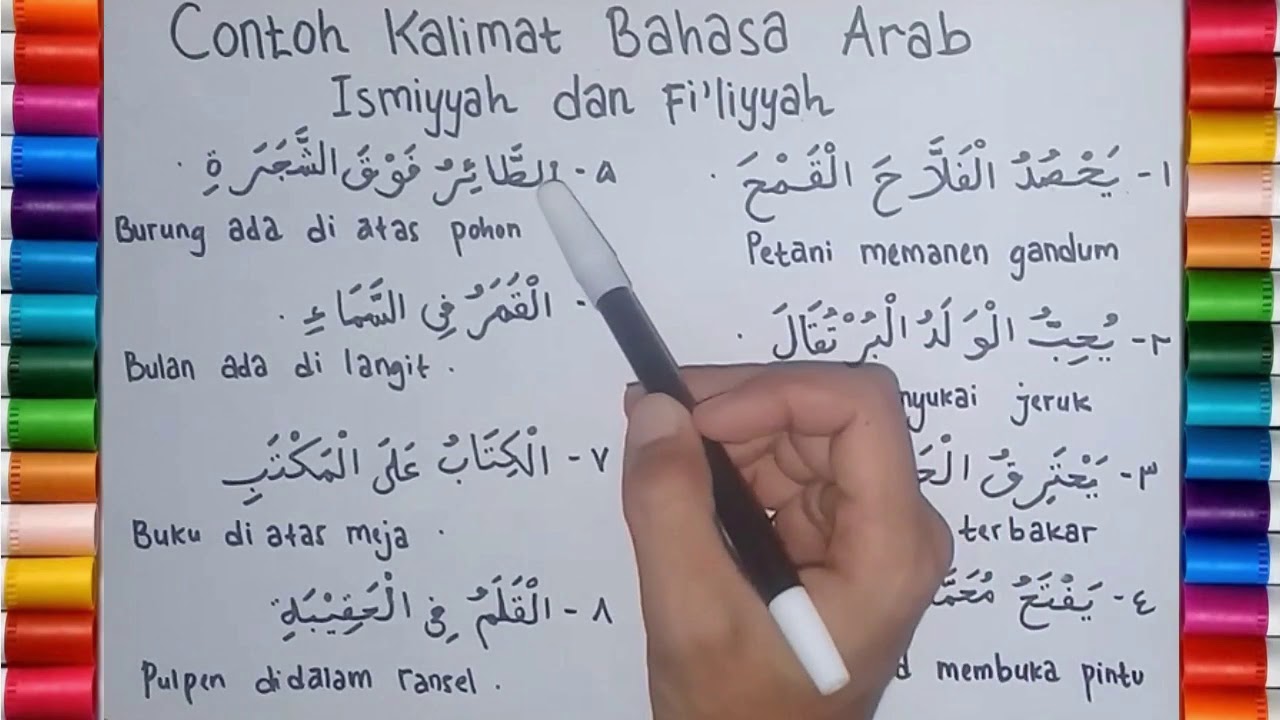 Contoh Kalimat Bahasa Arab
Ismiyyah dan Fi'liyyah
١- يَحْصُدُ الْفَلاَّحَ الْقَمْحَ .
Petani memanen gandum
٢- يُحِبُّ الْوَلَدُ الْبُرْتُقَالَ .
jeruk
٣- يَحْتَرِقُ
terbakar
٤- يَفْتَحُ
membuka pintu
٥- الطَّائِرُ فَوْقَ الشَّجَرَةِ .
Burung ada di atas pohon
- الْقَمَرُ فِي السَّمَاءِ .
Bulan ada di langit .
٧- الْكِتَابُ عَلَى الْمَكْتَبِ
Buku di atas meja .
٨- الْقَلَمُ فِي الْحَقِيْبَةِ
Pulpen didalam ransel .